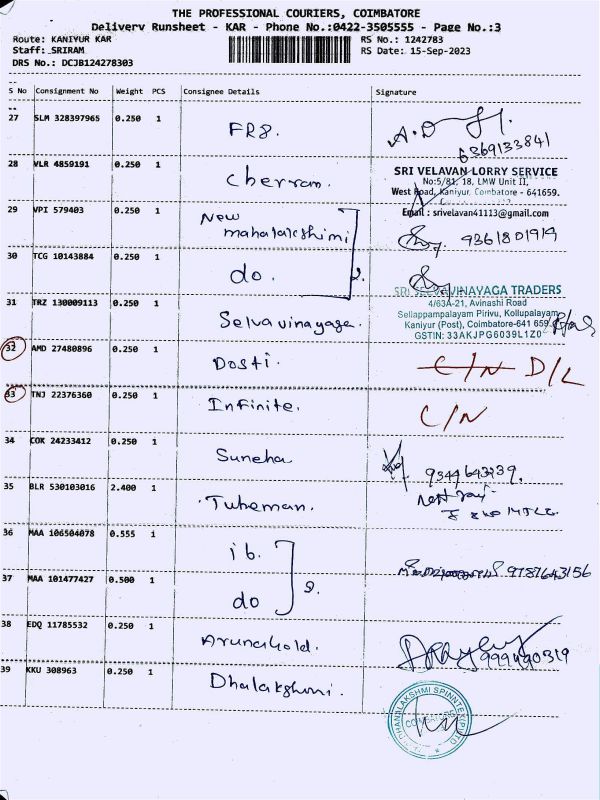 THE PROFESSIONAL COURIERS, COIMBATORE
Delivery Runsheet - KAR - Phone No.:0422-3505555 - Page No.:3
Route: KANIYUR KAR
RS No.: 1242783
Staff: SRIRAM
RS Date: 15-Sep-2023
DRS No.: DCJB124278303
S No Consignment No Weight PCS Consignee Details Signature
27 SLM 328397965 0.250 1 FR8.
6369133841
28 VLR 4859191 0.250 1 Cherran.
SRI VELAVAN LORRY SERVICE
No:5/81, 18, LMW Unit II,
West Road, Kaniyur, Coimbatore - 641659.
Email : srivelavan41113@gmail.com
29 VPI 579403 0.250 1 New
mahalakshimi
9361801919
30 TCG 10143884 0.250 1 do. 2.
SRI SELVAVINAYAGA TRADERS
4/63A-21, Avinashi Road
Sellappampalayam Pirivu, Kollupalayam,
Kaniyur (Post), Coimbatore-641 659.
GSTIN: 33AKJPG6039L1Z0
31 TRZ 130009113 0.250 1 Selvavinayaga.
32 AMD 27480896 0.250 1 Dosti. C/N D/L
33 TNJ 22376360 0.250 1 Infinite. C/N
34 COK 24233412 0.250 1 Suneha
9344643239.
35 BLR 530103016 2.400 1 Tubeman.
36 MAA 106504078 0.555 1 ib.
9787643156
37 MAA 101477427 0.500 1 do 2.
38 EDQ 11785532 0.250 1 Arunahold.
999490319
39 KKU 308963 0.250 1 Dhalakshmi.
DHANALAKSHMI SPINNTEX
COIMBATORE